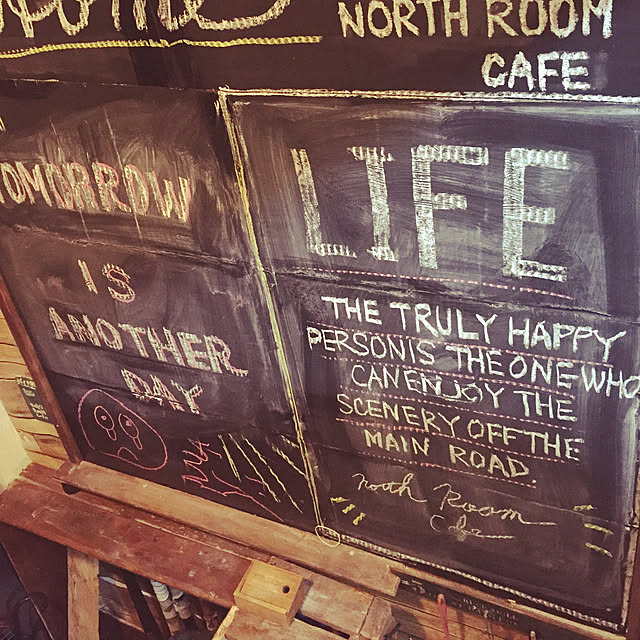 NORTH ROOM
CAFE
TOMORROW
IS
ANOTHER
DAY
LIFE
THE TRULY HAPPY
PERSON IS THE ONE WHO
CAN ENJOY THE
SCENERY OFF THE
MAIN ROAD.
Noth Room
Cafe